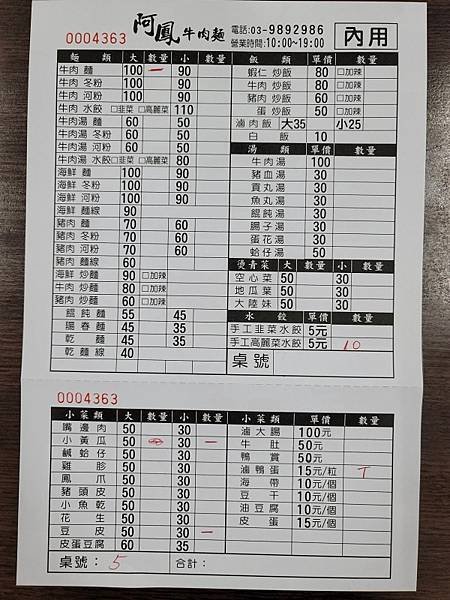 0004363 阿鳳牛肉麵 電話:03-9892986 內用
營業時間:10:00~19:00
麵 類 大 數量 小 數量
牛肉 麵 100 一 90
牛肉 冬粉 100 90
牛肉 河粉 100 90
牛肉 水餃 □韭菜 □高麗菜 110
牛肉湯 麵 60 50
牛肉湯 冬粉 60 50
牛肉湯 河粉 60 50
牛肉湯 水餃 □韭菜 □高麗菜 80
海鮮 麵 100 90
海鮮 冬粉 100 90
海鮮 河粉 100 90
海鮮 麵線 90
豬肉 麵 70 60
豬肉 冬粉 70 60
豬肉 河粉 70 60
豬肉 麵線 60
海鮮 炒麵 90 □加辣
牛肉 炒麵 80 □加辣
豬肉 炒麵 60 □加辣
餛飩麵 55 45
陽春麵 45 35
乾麵 45 35
乾麵線 40
飯 類 單價 數量
蝦仁 炒飯 80 □加辣
牛肉 炒飯 80 □加辣
豬肉 炒飯 60 □加辣
蛋 炒飯 50 □加辣
滷肉飯 大35 小25
白飯 10
湯 類 單價 數量
牛肉湯 100
豬血湯 30
貢丸湯 30
魚丸湯 30
餛飩湯 30
腸子湯 30
蛋花湯 30
蛤仔湯 50
燙青菜 大 數量 小 數量
空心菜 50 30
地瓜葉 50 30
大陸妹 50 30
水 餃 單價 數量
手工韭菜水餃 5元
手工高麗菜水餃 5元 10
桌號
0004363
小菜類 大 數量 小 數量
嘴邊肉 50 30
小黃瓜 50 30 一
鹹蛤仔 50 30
雞胗 50 30
鳳爪 50 30
豬頭皮 50 30
小魚乾 50 30
花生 50 30
豆皮 50 30 一
皮蛋豆腐 60 35
小菜類 單價 數量
滷大腸 100元
牛肚 50元
鴨賞 50元
滷鴨蛋 15元/粒 T
海帶 10元/個
豆干 10元/個
油豆腐 10元/個
皮蛋 15元/個
桌號: 5 合計: